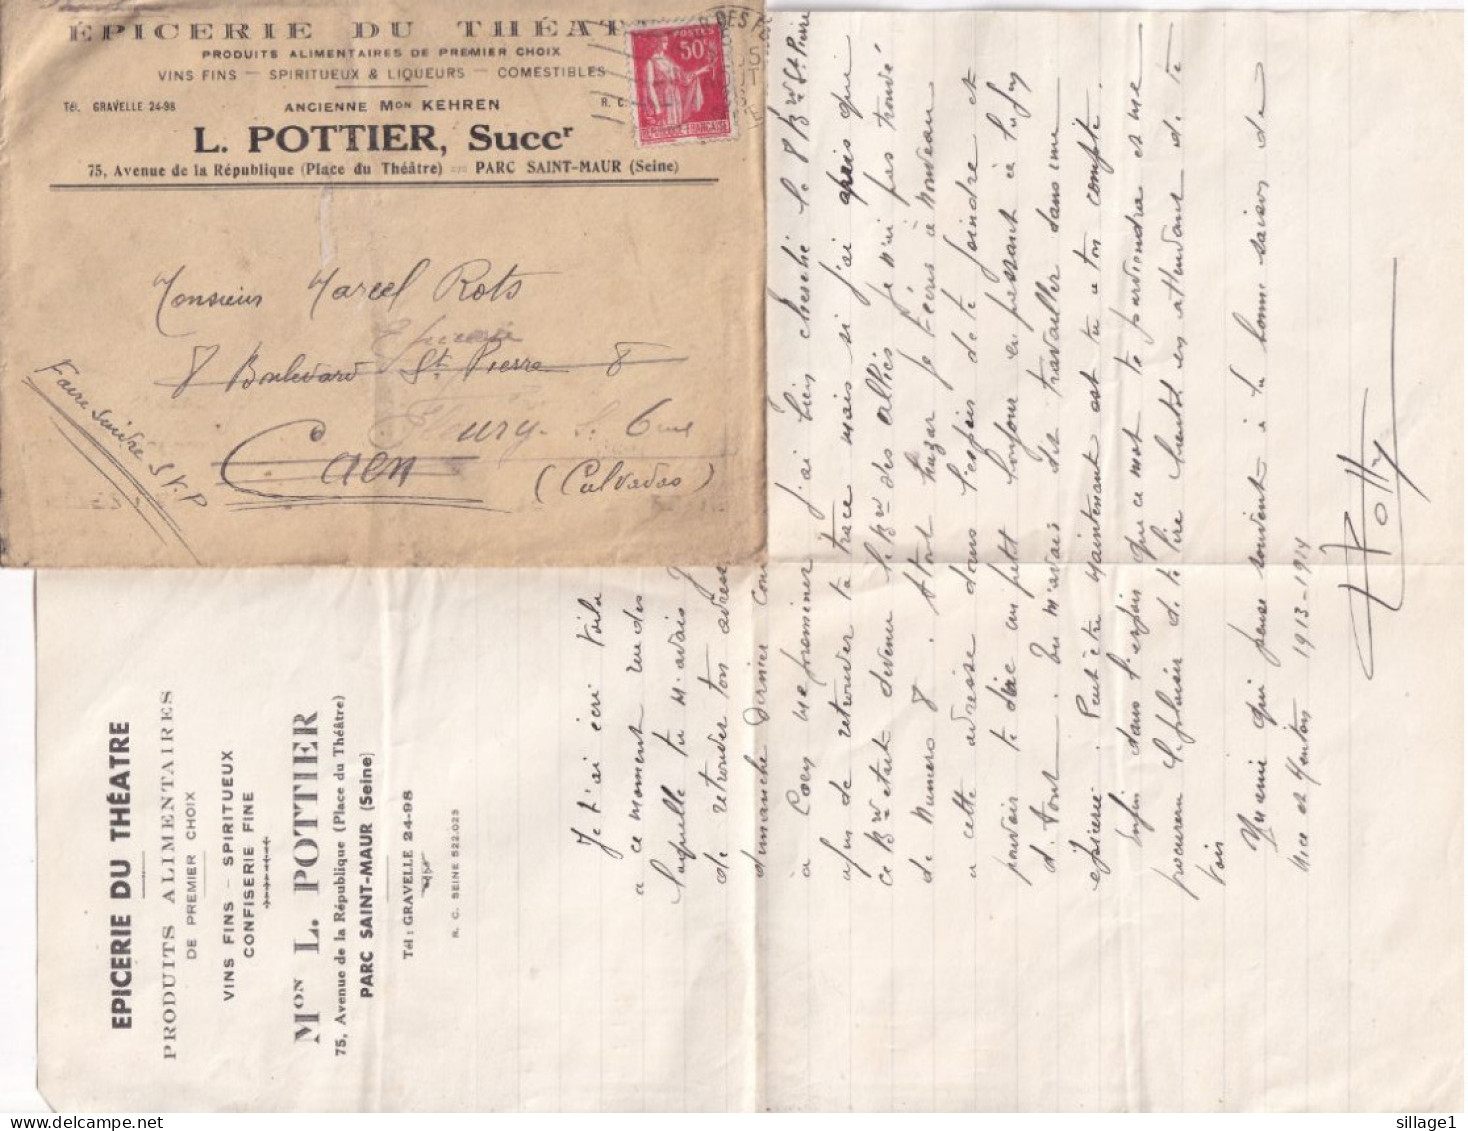 ÉPICERIE DU THÉAT
PRODUITS ALIMENTAIRES DE PREMIER CHOIX
VINS FINS — SPIRITUEUX & LIQUEURS — COMESTIBLES
Tél. GRAVELLE 24-98
ANCIENNE Mon KEHREN
R. C.
L. POTTIER, Succr
75, Avenue de la République (Place du Théâtre) — PARC SAINT-MAUR (Seine)
POSTES
50c
REPUBLIQUE FRANÇAISE
Monsieur Marcel Rots
Epicerie
8 Boulevard St Pierre 8
Fleury s. Orne
Caen
(Calvados)
Faire Suivre S.V.P
EPICERIE DU THÉATRE
PRODUITS ALIMENTAIRES
DE PREMIER CHOIX
VINS FINS - SPIRITUEUX
CONFISERIE FINE
Mon L. POTTIER
75, Avenue de la République (Place du Théâtre)
PARC SAINT-MAUR (Seine)
Tél : GRAVELLE 24-98
R. C. SEINE 522.023
Je t'ai écri voila
a ce moment rue des
laquelle tu m'avais
de retrouver ton adresse
dimanche dernier
a Caen me promener j'ai bien cherché le 8 Bd St Pierre
afin de retrouver ta trace mais si j'ai apris que
ce Bd etait devenu le Bd des alliés je n'ai pas trouvé
de Numero 8. A tout hazar je t'écris à nouveau
a cette adresse dans l'espoir de te joindre et
pouvoir te dire un petit bonjour en passant
d. tout. Tu m'avais dit travailler dans une
epicerie. Peut être maintenant est tu a ton compte.
Enfin dans l'espoir que ce mot te parviendra et me
procurera le plaisir de te lire bientot en attendant de te
voir
qui pense souvent a ta bonne saison de
Nice et Menton 1913-1914
Pottier
sillage1